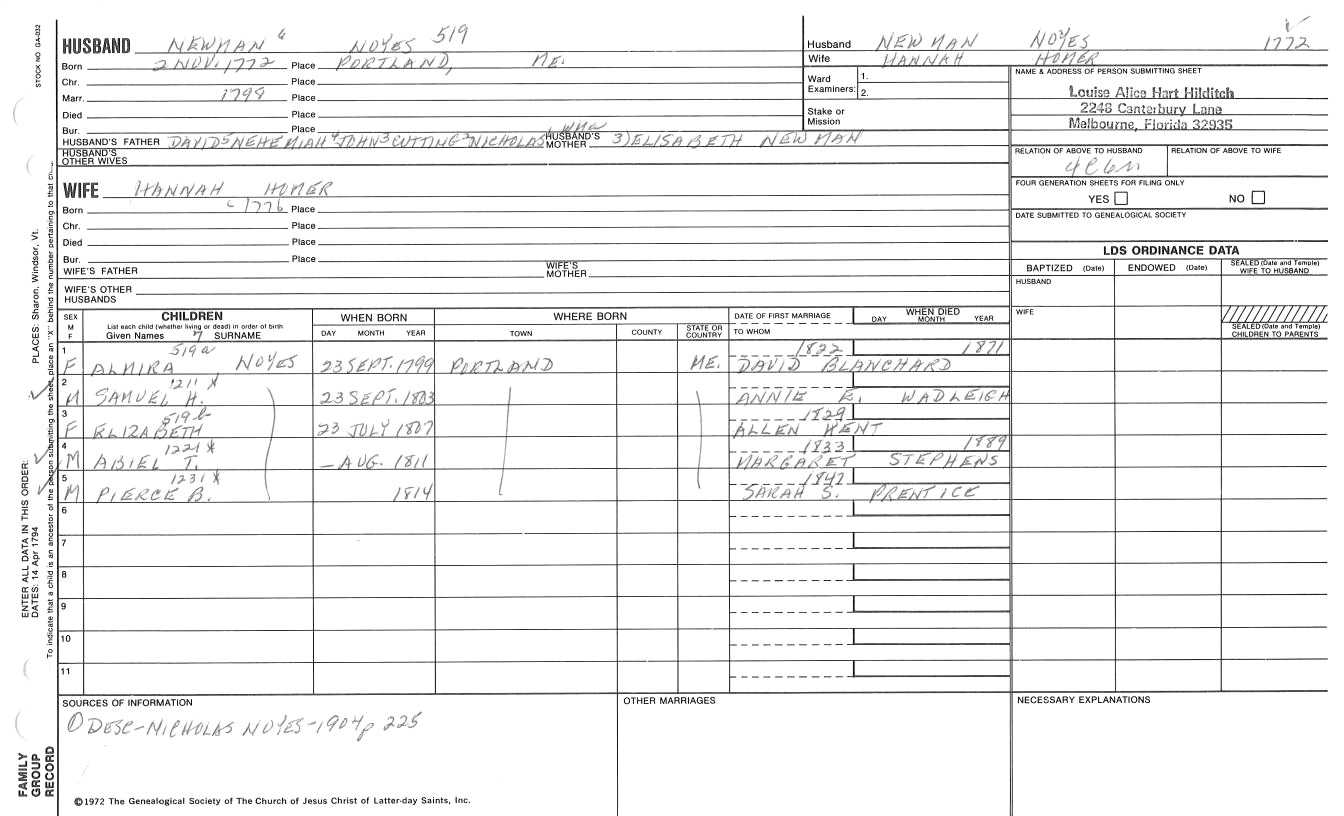 STOCK NO. GA-032
HUSBAND NEWMAN 6 NOYES 519
Born 2 NOV. 1772 Place PORTLAND, ME.
Chr. Place
Marr. 1798 Place
Died Place
Bur. Place
HUSBAND'S FATHER DAVID 5 NEHEMIAH 4 JOHN 3 CUTTING 2 NICHOLAS 1 HUSBAND'S MOTHER 3) ELISABETH NEWMAN
HUSBAND'S OTHER WIVES
Husband NEWMAN NOYES 1772
Wife HANNAH HOMER
Ward Examiners: 1.
2.
Stake or Mission
NAME & ADDRESS OF PERSON SUBMITTING SHEET
Louise Alice Hart Hilditch
2248 Canterbury Lane
Melbourne, Florida 32935
RELATION OF ABOVE TO HUSBAND RELATION OF ABOVE TO WIFE
FOUR GENERATION SHEETS FOR FILING ONLY
YES NO
DATE SUBMITTED TO GENEALOGICAL SOCIETY
WIFE HANNAH HOMER
Born c 1776 Place
Chr. Place
Died Place
Bur. Place
WIFE'S FATHER WIFE'S MOTHER
WIFE'S OTHER HUSBANDS
LDS ORDINANCE DATA
BAPTIZED (Date) ENDOWED (Date) SEALED (Date and Temple) WIFE TO HUSBAND
HUSBAND
WIFE
SEALED (Date and Temple) CHILDREN TO PARENTS
SEX M F
CHILDREN
List each child (whether living or dead) in order of birth
Given Names 7 SURNAME
WHEN BORN
DAY MONTH YEAR
WHERE BORN
TOWN COUNTY STATE OR COUNTRY
DATE OF FIRST MARRIAGE
TO WHOM
WHEN DIED
DAY MONTH YEAR
1 519a 1822 1871
F ALMIRA NOYES 23 SEPT. 1799 PORTLAND ME. DAVID BLANCHARD
2 1211 X
M SAMUEL H. 23 SEPT. 1803 ANNIE E. WADLEIGH
3 519b 1829
F ELIZABETH 23 JULY 1807 ALLEN KENT
4 1221 * 1833 1889
M ABIEL T. – AUG. 1811 MARGARET STEPHENS
5 1231 * 1842
M PIERCE B. 1814 SARAH S. PRENTICE
6
7
8
9
10
11
SOURCES OF INFORMATION
① DESC–NICHOLAS NOYES–1904 p 225
OTHER MARRIAGES
NECESSARY EXPLANATIONS
©1972 The Genealogical Society of The Church of Jesus Christ of Latter-day Saints, Inc.
FAMILY GROUP RECORD
ENTER ALL DATA IN THIS ORDER:
DATES: 14 Apr 1794
PLACES: Sharon, Windsor, Vt.
To indicate that a child is an ancestor of the person submitting the sheet, place an "X" behind the number pertaining to that